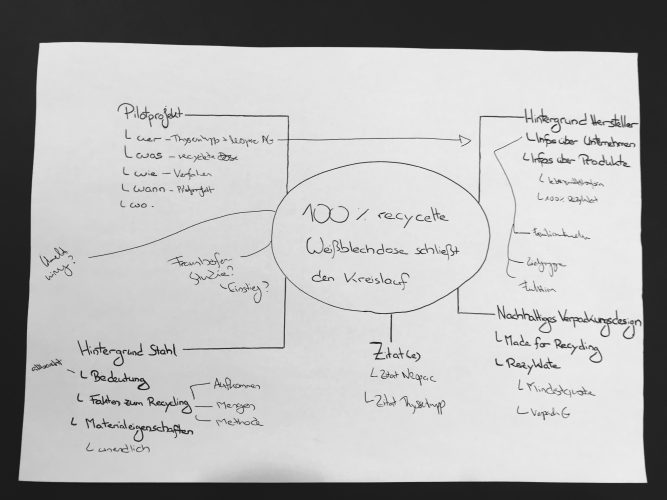 Pilotprojekt
wer - Thyssenkrupp + Nespac AG
was - recycelte Dose
wie - Verfahren
wann - Pilotprojekt
wo.
Hintergrund Hersteller
Infos über Unternehmen
Infos über Produkte
100% Rezyklat
Zielgruppe
Funktion
100 % recycelte
Weißblechdose schließt
den Kreislauf
Fraunhofer
Studie?
Einstieg?
Hintergrund Stahl
Bedeutung
Fakten zum Recycling
Aufkommen
Mengen
Methode
Materialeigenschaften
unendlich
Zitat(e)
Zitat Nespac
Zitat Thyssenkrupp
Nachhaltiges Verpackungsdesign
Made for Recycling
Rezyklate
Mindestquote
VerpackG